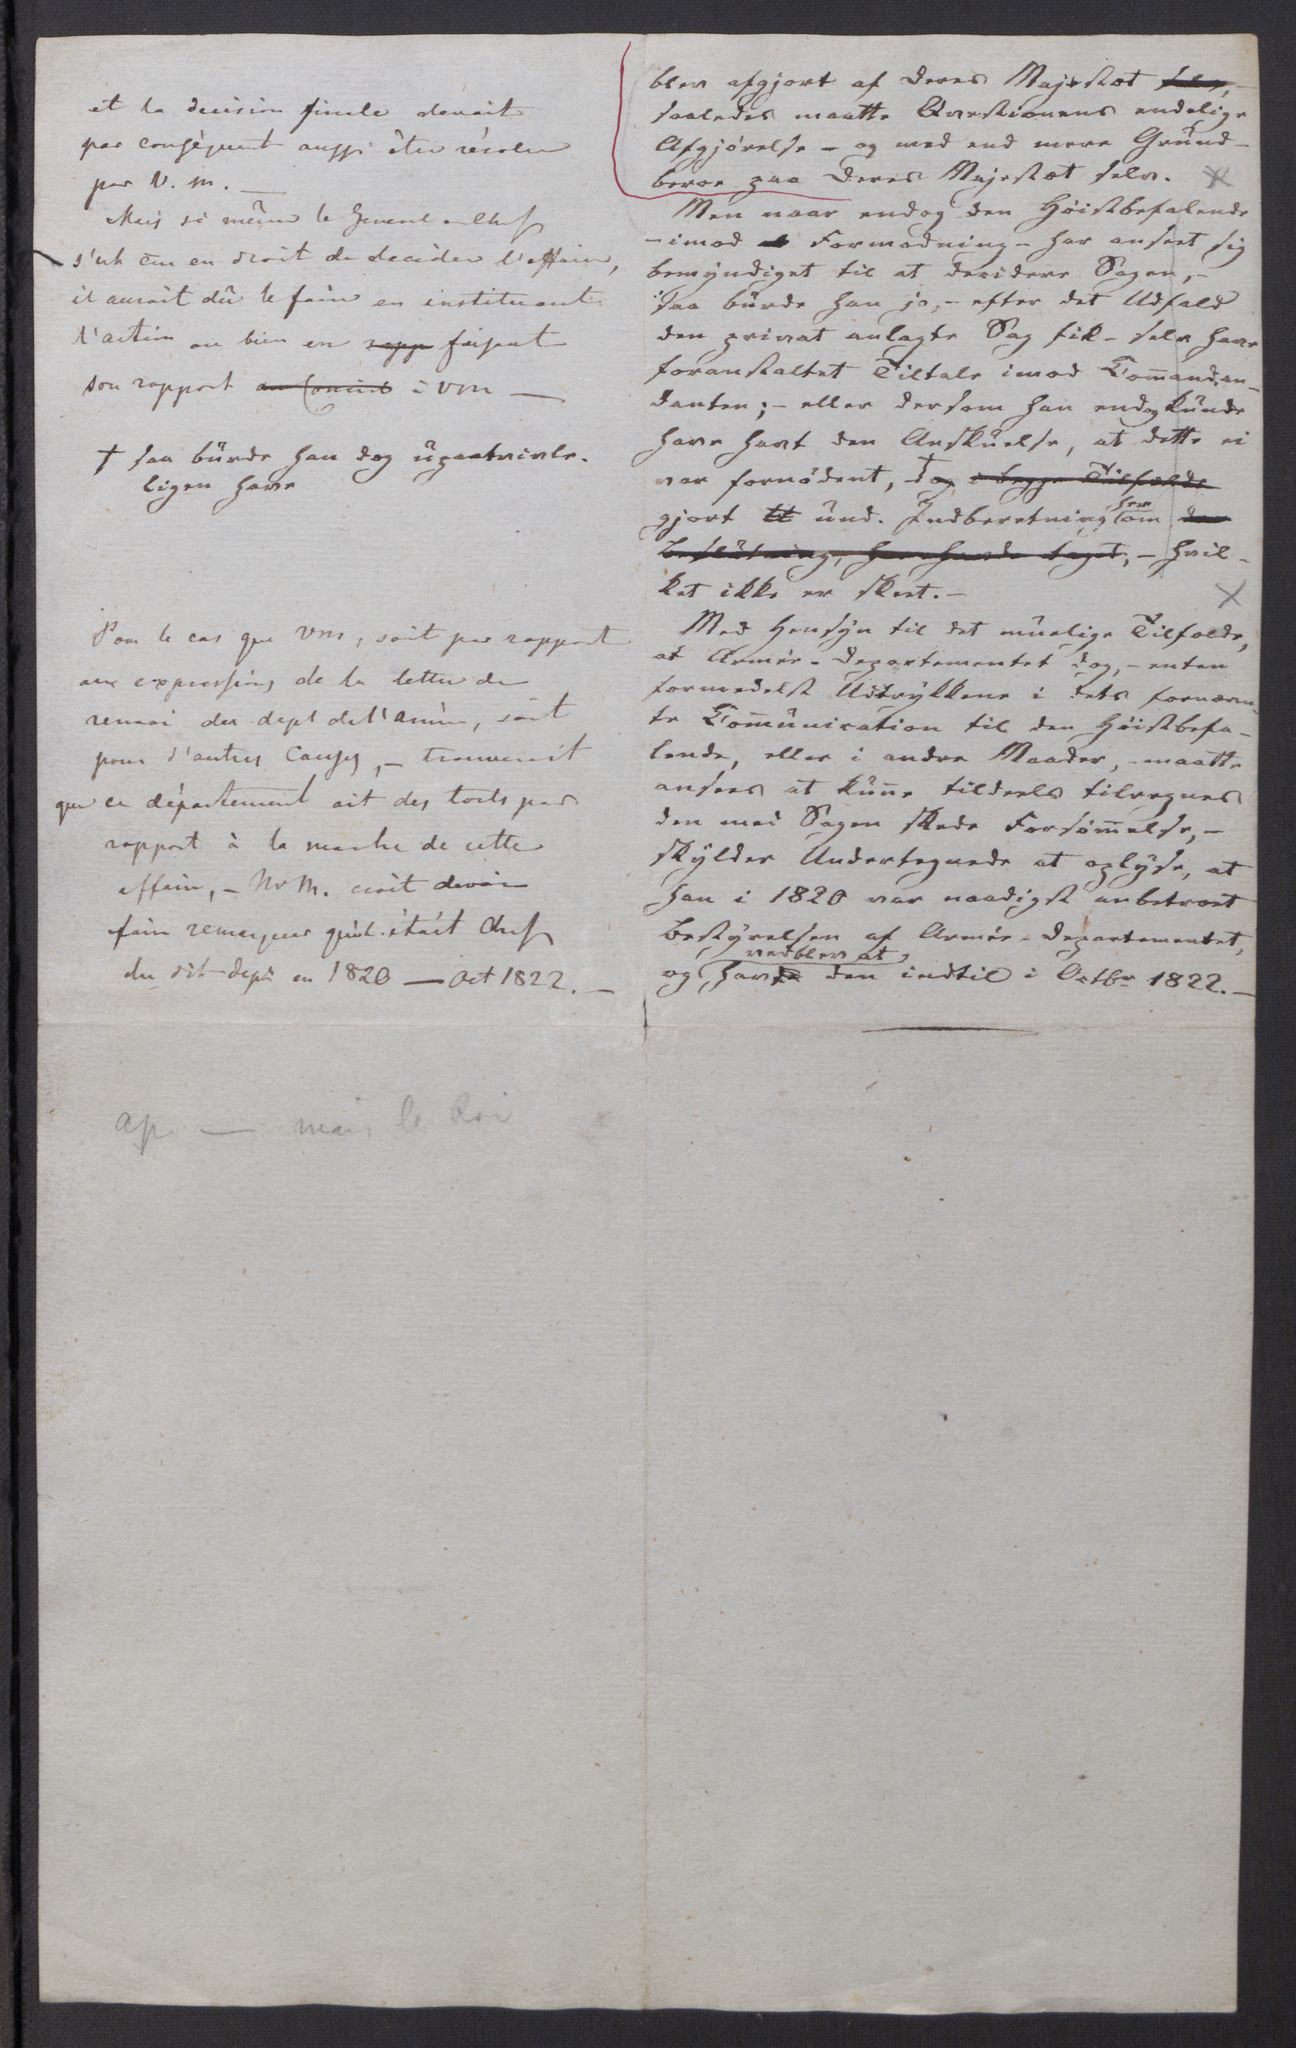 et la decision finale devait
par conséquent aussi être résolue
par V. M. —
Mais si même le General en Chef
s'est cru en droit de decider l'affaire,
il aurait dû le faire en instituant
l'action ou bien en rapp faisant
son rapport au Conseil à VM —
† saa bürde han dog üpaatvivle-
ligen have
Pour le cas que VM, soit par rapport
aux expressions de la lettre de
renvoi du dept de l'armée, soit
pour d'autres causes, — trouverait
que ce département ait des torts par
rapport à la marche de cette
affaire, — Mr M. croit devoir
faire remarquer qu'il était chef
du dit dept en 1820 — Oct 1822. —
ap — mais le Roi
blev afgjort af Deres Majestæt selv,
saaledes maatte Qvæstionens endelige
Afgjörelse – og med end mere Gründ –
beroe paa Deres Majestæt selv.
Men naar endog den Höistbefalende
– imod Formodning – har anseet sig
bemÿndiget til at decidere Sagen, –
saa bürde han jo, – efter det Udfald
den privat anlagte Sag fik – selv have
foranstaltet Tiltale imod Com̅andan-
danten; – eller dersom han endog künde
have havt den Anskuelse, at dette ei
var fornödent, † dog i begge Tilfælde
gjort und. Indberetning herom den
Beslütning, han havde taget, – hvil-
ket ikke er skeet. –
Med Hensÿn til det müelige Tilfælde,
at Armée-Departementet dog, – enten
formedelst Udtrÿkkene i dets fornævn-
te Com̅ünication til den Höistbefa-
lende, eller i andre Maader, – maatte
ansees at kün̅e tildeels tilregnes
den med Sagen skede Forsöm̅else, –
skÿlder Undertegnede at oplÿse, at
han i 1820 var naadigst anbetroet
Bestÿrelsen af Armée-Departementet,
og vedblev at havde den indtil i Octbr 1822. –